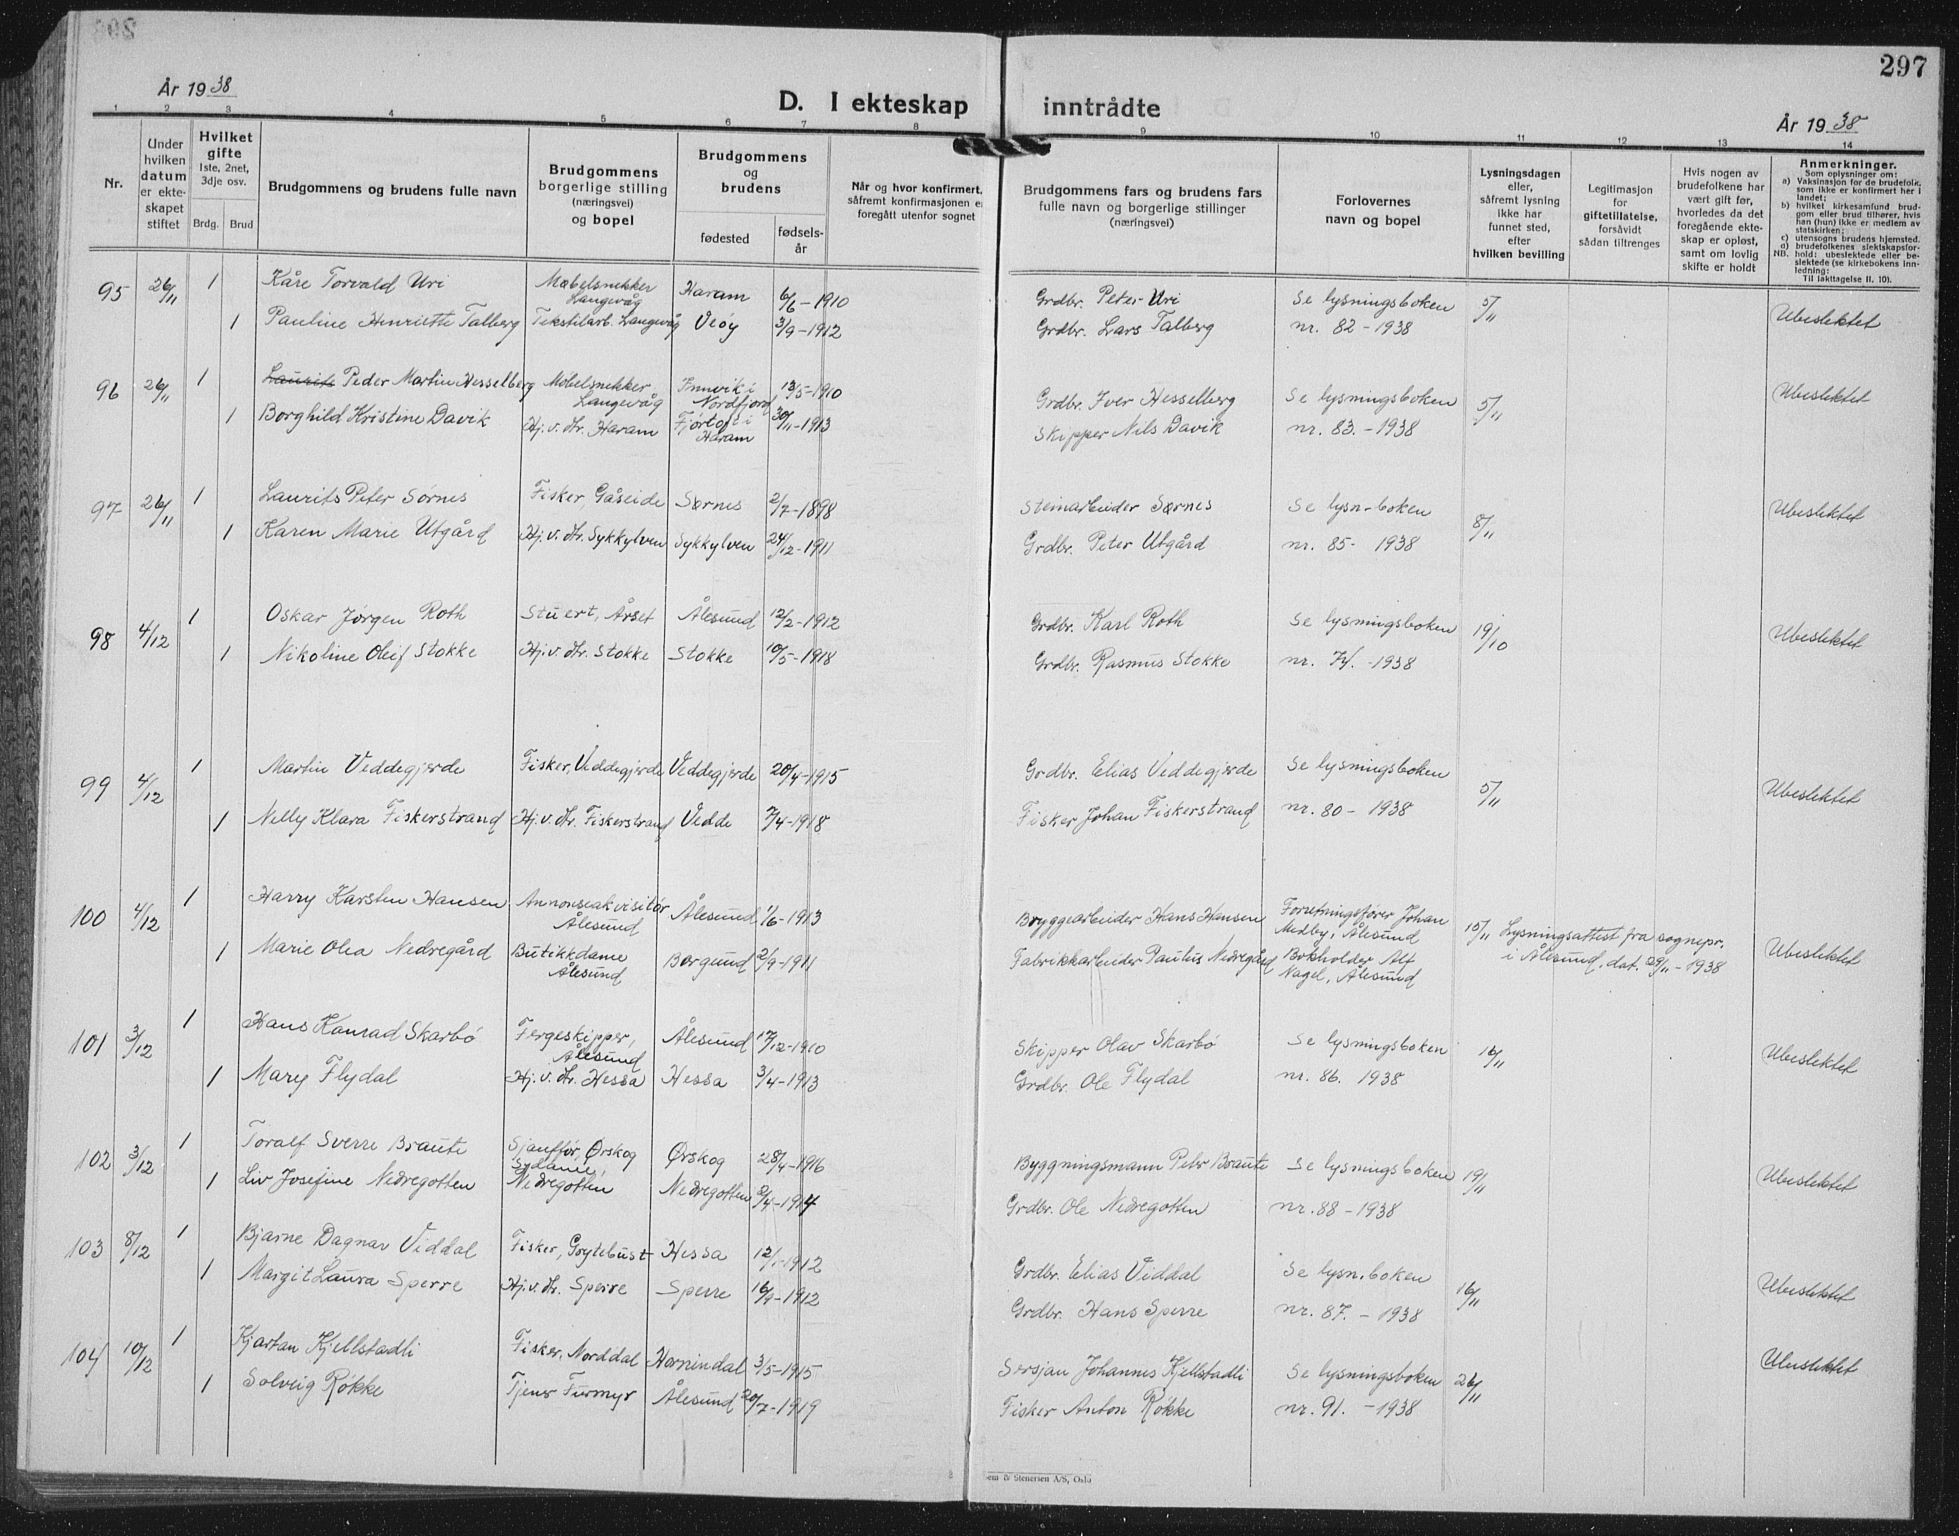 297
År 1938
D. I ekteskap inntrådte
År 1938
1 2 3 4 5 6 7 8 9 10 11 12 13 14
Nr.
Under hvilken datum er ekteskapet stiftet
Hvilket gifte
1ste, 2net, 3dje osv.
Brdg. Brud
Brudgommens og brudens fulle navn
Brudgommens borgerlige stilling (næringsvei) og bopel
Brudgommens og brudens
fødested
fødselsår
Når og hvor konfirmert,
såfremt konfirmasjonen e
foregått utenfor sognet
Brudgommens fars og brudens fars
fulle navn og borgerlige stillinger
(næringsvei)
Forlovernes
navn og bopel
Lysningsdagen
eller,
såfremt lysning
ikke har
funnet sted,
efter
hvilken bevilling
Legitimasjon
for
giftetillatelse,
forsåvidt
sådan tiltrenges
Hvis nogen av
brudefolkene har
vært gift før,
hvorledes da det
foregående ekteskap er opløst,
samt om lovlig
skifte er holdt
Anmerkninger.
Som oplysninger om:
a) Vaksinasjon for de brudefolk, som ikke er konfirmert her i landet;
b) hvilket kirkesamfund brudgom eller brud tilhører, hvis han (hun) ikke er medlem av statskirken;
c) utensogns brudens hjemsted.
d) brudefolkenes slektskapsforhold: ubeslektede eller beslektede (se kirkebokens innledning:
NB.
Til Iakttagelse II. 10).
95 26/11 1 Kåre Torvald Uri Møbelsnekker Langevåg Haram 6/6-1910 Grdbr. Peter Uri Se lysningsboken 5/11 Ubeslektet
1 Pauline Henriette Talberg Tekstilarb. Langevåg Veøy 3/9-1912 Grdbr. Lars Talberg nr. 82-1938
96 26/11 1 Laurits Peder Martin Hesselberg Møbelsnekker, Langevåg Innvik i Nordfjord 13/5-1910 Grdbr. Iver Hesselberg Se lysningsboken 5/11 Ubeslektet
1 Borghild Kristine Davik Hj. v. Hr. Haram Fjørtoft i Haram 30/11-1913 Skipper Nils Davik nr. 83.-1938
97 26/11 1 Laurits Peter Sørnes Fisker, Gåseide Sørnes 2/7-1898 Steinarbeider Sørnes Se lysn.boken 8/11 Ubeslektet
1 Karen Marie Utgård Hj. v. Hr. Sykkylven Sykkylven 24/12-1911 Grdbr. Peter Utgård nr. 85-1938
98 4/12 1 Oskar Jørgen Roth Stuert, Årset Ålesund 12/2-1912 Grdbr. Karl Roth Se lysningsboken 19/10 Ubeslektet
1 Nikoline Oleif Stokke Hj. v. Hr. Stokke Stokke 10/5-1918 Grdbr. Rasmus Stokke nr. 74.-1938
99 4/12 1 Martin Veddegjerde Fisker, Veddegjerde Veddegjerde 20/4-1915 Grdbr. Elias Veddegjerde Se lysningsboken 5/11 Ubeslektet
1 Nelly Klara Fiskerstrand Hj. v. Hr. Fiskerstrand Vedde 7/4-1918 Fisker Johan Fiskerstrand nr. 80-1938
100 4/12 1 Harry Karsten Hansen Annonseakvisitør Ålesund Ålesund 1/6-1913 Byggearbeider Hans Hansen Forretningsfører Johan Medby, Ålesund 15/11 Lysningsattest fra sognepr. i Ålesund, dat. 29/11-1938 Ubeslektet
1 Marie Olea Nedregård Butikkdame Ålesund Borgund 2/9-1911 Fabrikkarbeider Paulus Nedregård Bokholder Alf Nagel, Ålesund
101 3/12 1 Hans Konrad Skarbø Fergeskipper, Ålesund Ålesund 17/12-1910 Skipper Olav Skarbø Se lysningsboken 16/11 Ubeslektet
1 Mary Flydal Hj. v. Hr. Hessa Hessa 3/4-1913 Grdbr. Ole Flydal nr. 86. 1938
102 3/12 1 Toralf Sverre Braute Sjauffør, Ørskog Ørskog 28/4-1916 Byggningsmann Peter Braute Se lysningsboken 19/11 Ubeslektet
1 Liv Josefine Nedregotten Sydame, Nedregotten Nedregotten 2/4-1914 Grdbr. Ole Nedregotten nr. 88-1938
103 8/12 1 Bjarne Dagnar Viddal Fisker, Grytebust Hessa 12/1-1912 Grdbr. Elias Viddal Se lysn.boken 16/11 Ubeslektet
1 Margit Laura Sperre Hj. v. Hr. Sperre Sperre 16/9-1912 Grdbr. Hans Sperre nr. 87.-1938
104 10/12 1 Kjartan Kjellstadli Fisker, Norddal Hornindal 3/5-1915 Sersjan Johannes Kjellstadli Se lysningsboken 26/11 Ubeslektet
1 Solveig Røkke Tjener Furmyr Ålesund 20/7-1919 Fisker Anton Røkke nr. 91.-1938
sem & Stenersen A/S, Oslo